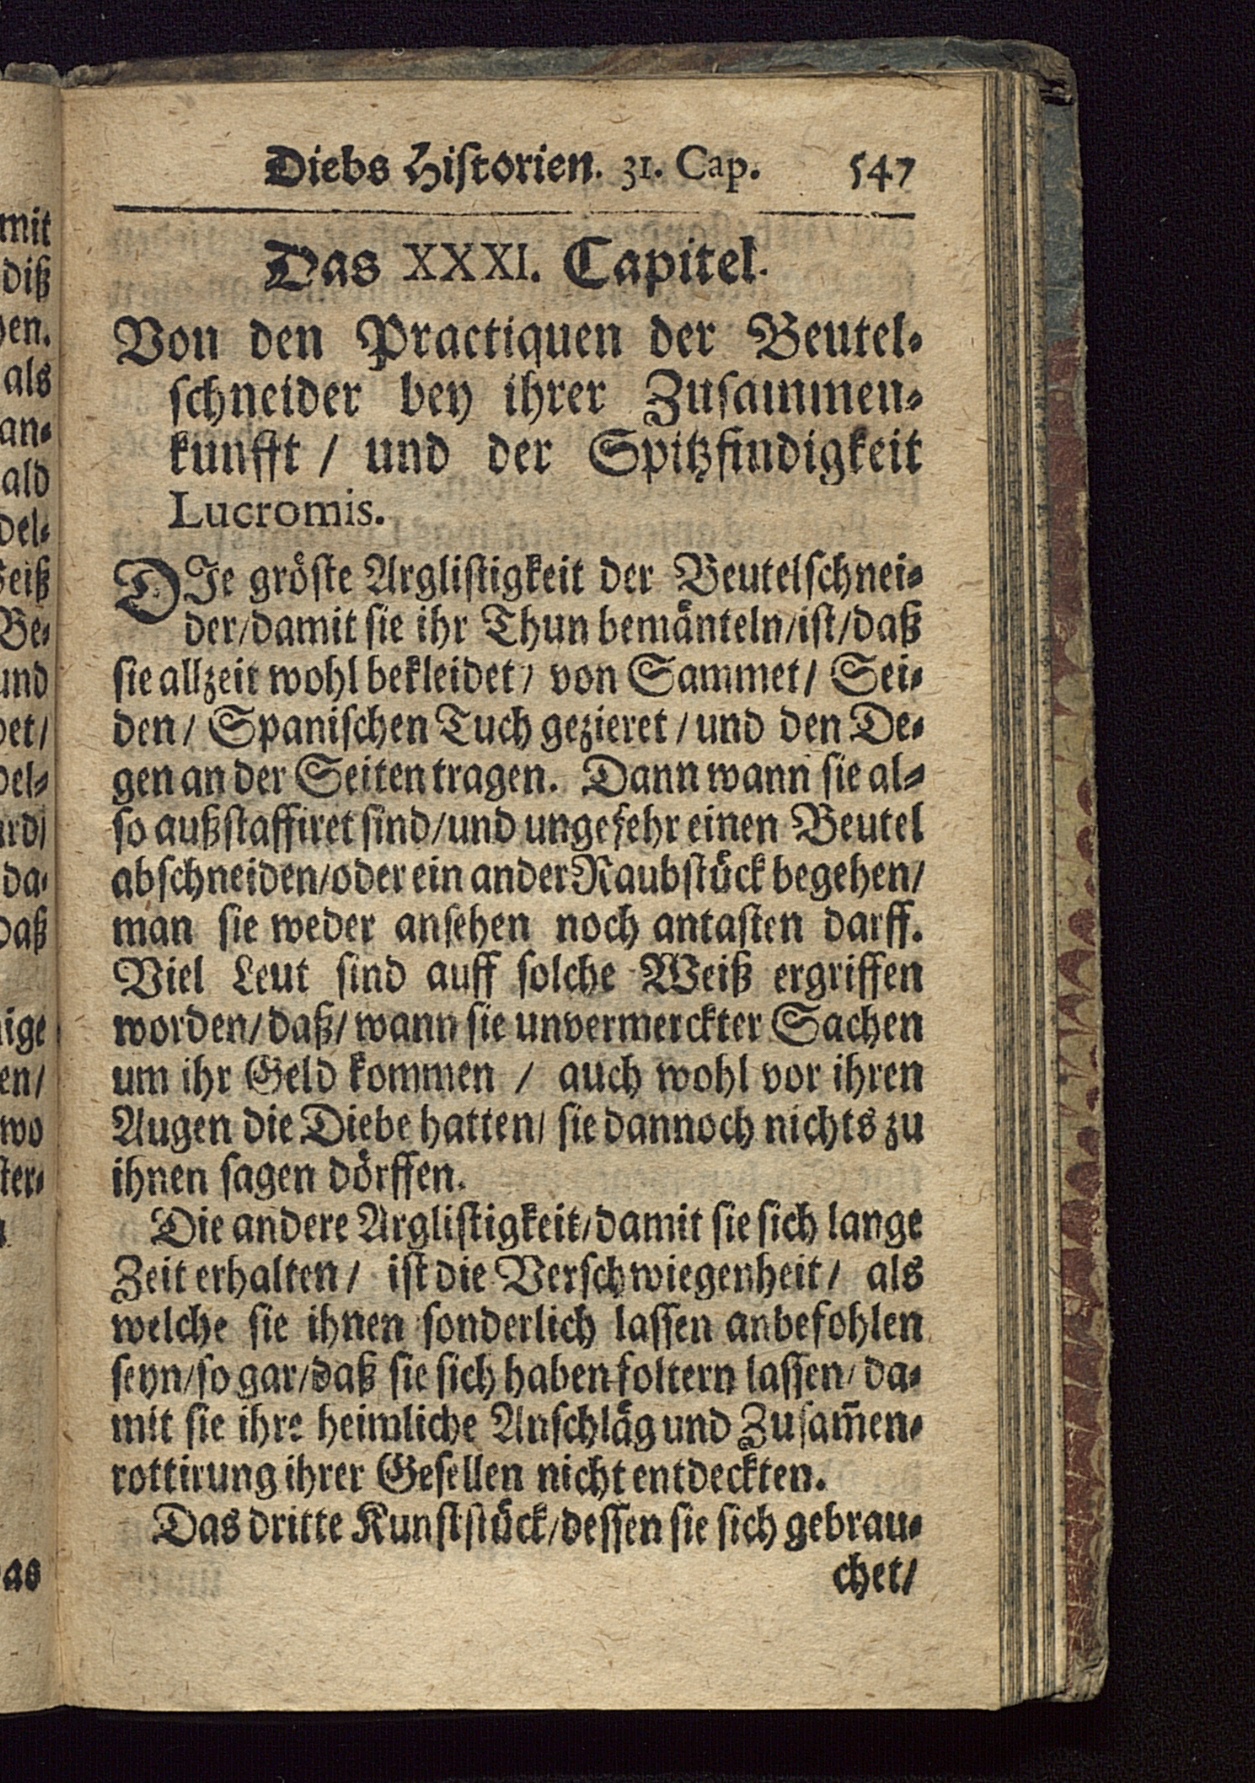 Diebs Historien. 31. Cap. 547
Das XXXI. Capitel.
Von den Practiquen der Beutel-
schneider bey ihrer Zusammen-
kunfft / und der Spitzfindigkeit
Lucromis.
DIe gröste Arglistigkeit der Beutelschnei-
der/damit sie ihr Thun bemänteln/ist/daß
sie allzeit wohl bekleidet/ von Sammet/ Sei-
den/ Spanischen Tuch gezieret / und den De-
gen an der Seiten tragen. Dann wann sie al-
so außstaffiret sind/und ungefehr einen Beutel
abschneiden/oder ein ander Raubstück begehen/
man sie weder ansehen noch antasten darff.
Viel Leut sind auff solche Weiß ergriffen
worden/daß/wann sie unvermerckter Sachen
um ihr Geld kommen / auch wohl vor ihren
Augen die Diebe hatten/ sie dannoch nichts zu
ihnen sagen dörffen.
Die andere Arglistigkeit/damit sie sich lange
Zeit erhalten/ ist die Verschwiegenheit/ als
welche sie ihnen sonderlich lassen anbefohlen
seyn/so gar/daß sie sich haben foltern lassen/ da-
mit sie ihre heimliche Anschläg und Zusam̃en-
rottirung ihrer Gesellen nicht entdeckten.
Das dritte Kunststück/dessen sie sich gebrau-
chet/